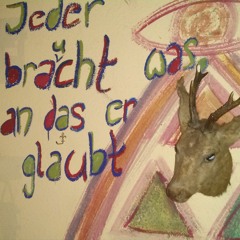 Jeder
braucht was,
an das er
glaubt